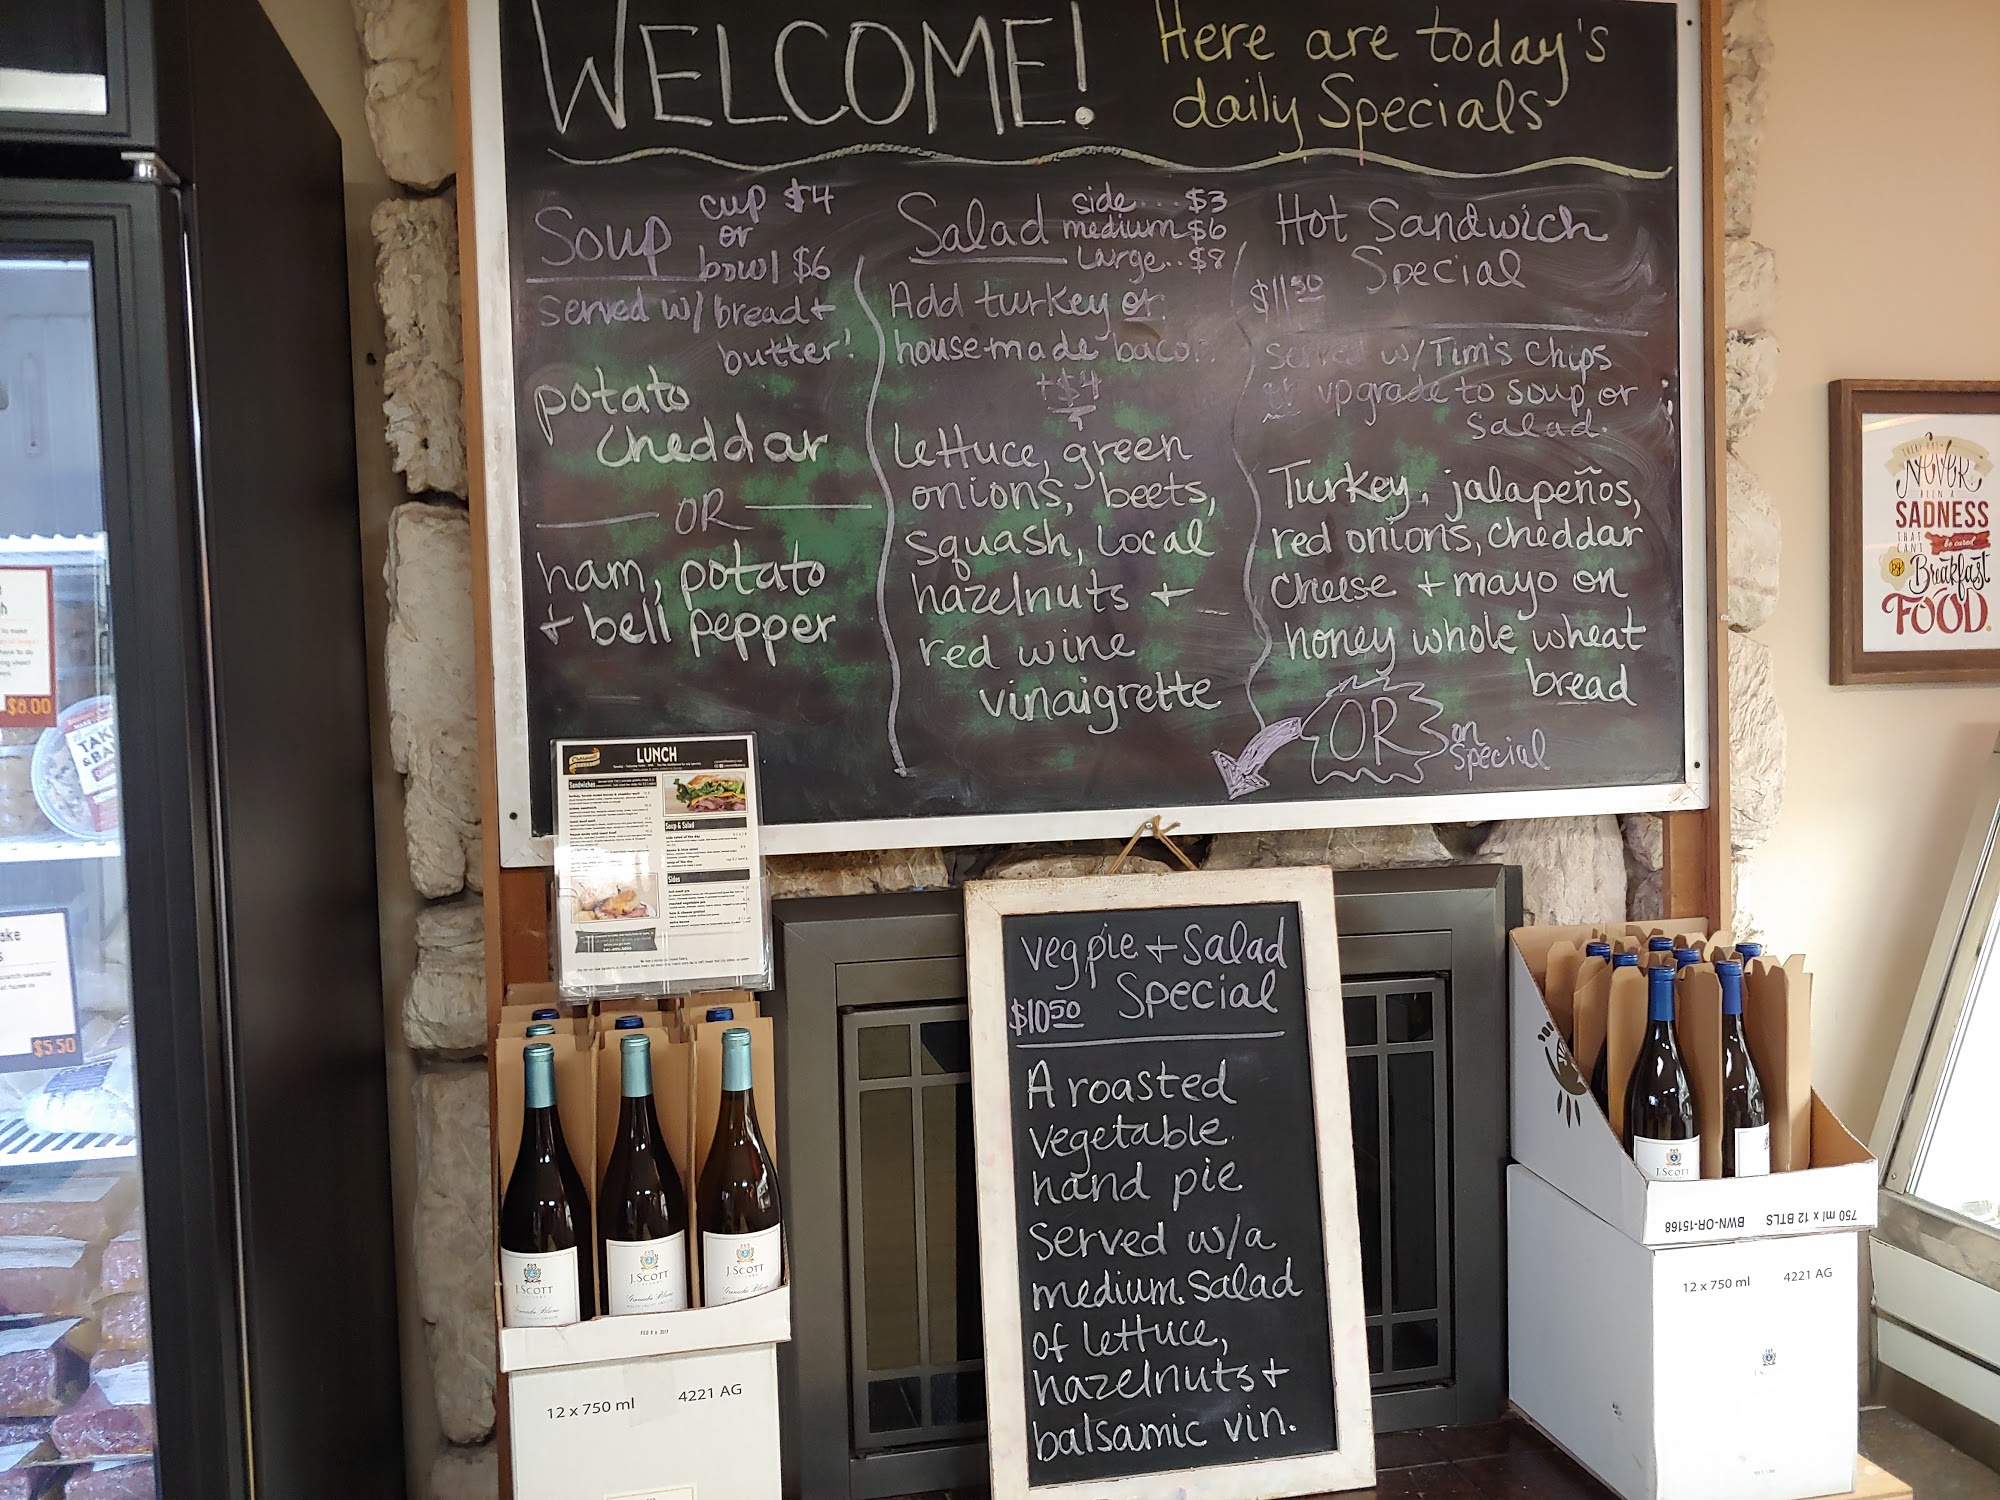 WELCOME!
Here are today's
daily Specials
Soup
cup $4
or
bowl $6
served w/ bread +
butter!
potato
cheddar
OR
ham, potato
+ bell pepper
Salad
side... $3
medium $6
Large.. $8
Add turkey or
housemade bacon
+$4
lettuce, green
onions, beets,
squash, local
hazelnuts +
red wine
vinaigrette
Hot Sandwich
Special
$11 50
served w/Tim's Chips
upgrade to soup or
salad.
Turkey, jalapeños,
red onions, cheddar
cheese + mayo on
honey whole wheat
bread
OR
on
Special
veg pie + Salad
Special
$10 50
A roasted
vegetable
hand pie
Served w/a
medium salad
of lettuce,
hazelnuts +
balsamic vin.
LUNCH
Sandwiches
Soup & Salad
Sides
THERE HAS
NEVER
BEEN A
SADNESS
THAT
CANT
be cured
BY
Breakfast
FOOD.
$8.00
TAK
& BA
ake
$5.50
J. SCOTT
J. SCOTT
J. SCOTT
Grenache Blanc
12 x 750 ml
4221 AG
J. SCOTT
750 ml x 12 BTLS
BWN-OR-15168
12 x 750 ml
4221 AG